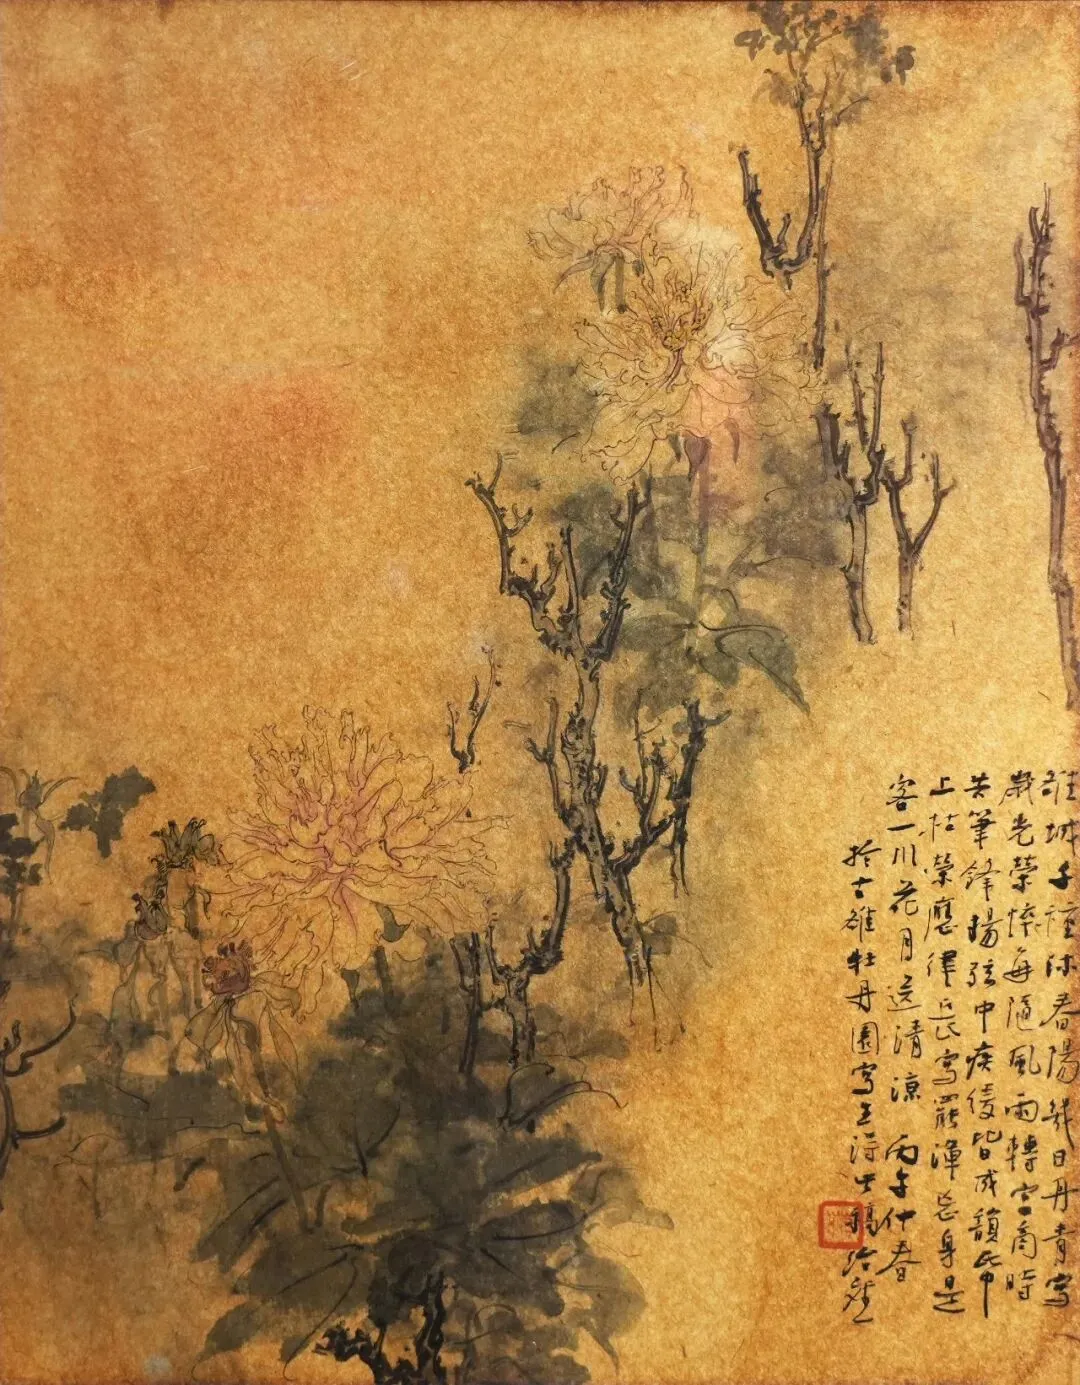 雒城千種沐春陽幾日丹青寫
歲光榮悴每隨風雨轉宮商時
共筆鋒揚弦中疾緩皆成韻紙
上枯榮應律長寫罷渾忘身是
客一川花月送清涼 丙午仲春
於古雒牡丹園寫王